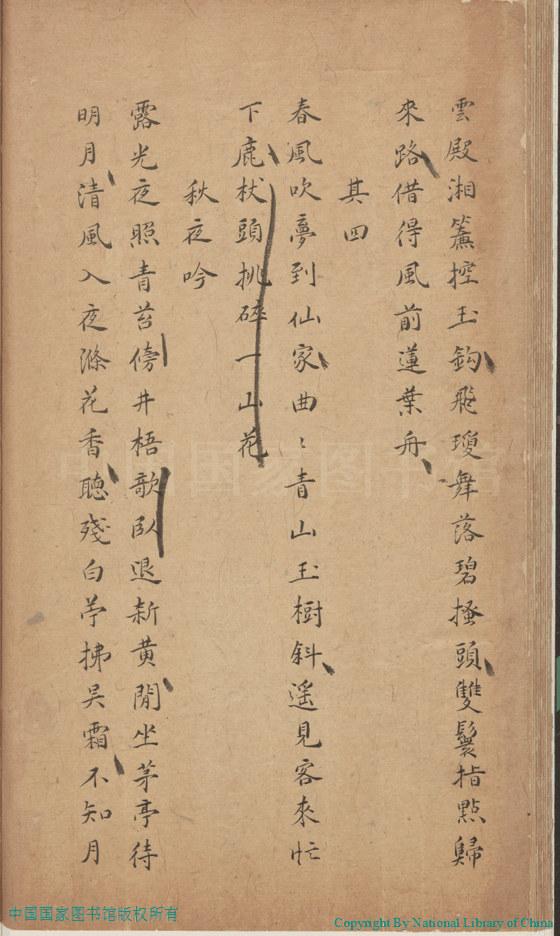 雲殿湘簾控玉鈎飛瓊舞落碧搔頭雙鬟指點歸
來路借得風前蓮葉舟
其四
春風吹夢到仙家曲〻青山玉樹斜遙見客來忙
下鹿杖頭挑碎一山花
秋夜吟
露光夜照青苔傍井梧歌臥退新黄閒坐茅亭待
明月清風入夜滌花香聽殘白苧拂吴霜不知月
中国国家图书馆版权所有
Copyright By National Library of China